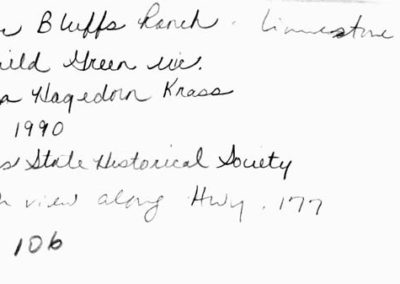 Bluffs Ranch. Limestone
Green
Hagedorn Krass
1990
State Historical Society
view along Hwy. 177
106